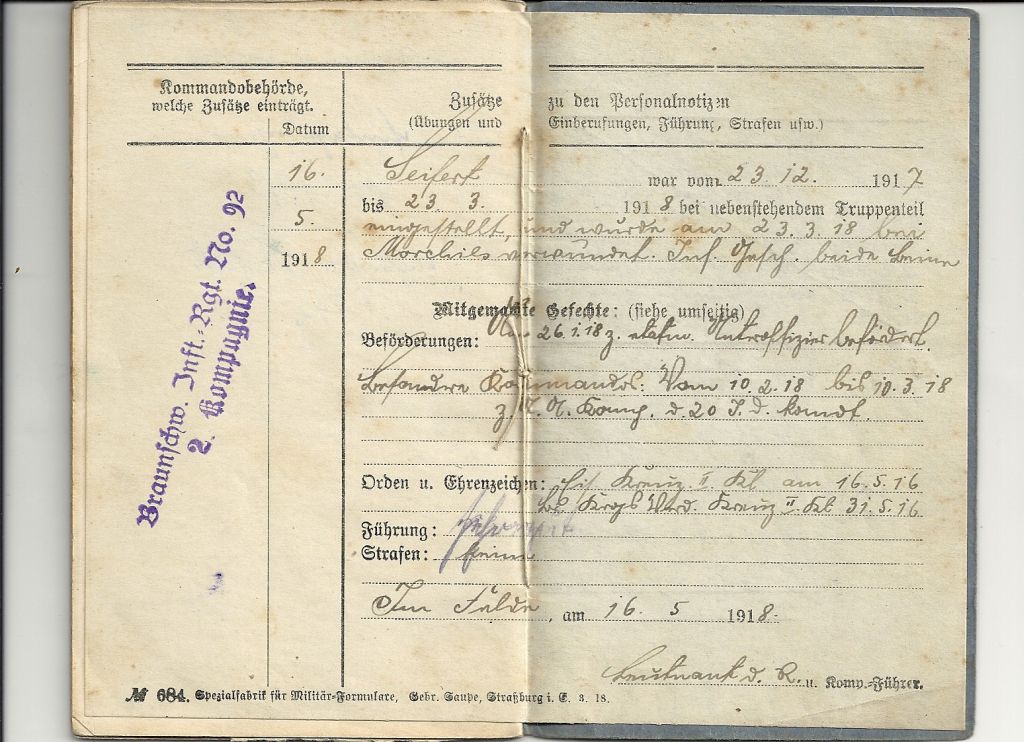 Kommandobehörde,
welche Zusätze einträgt.
Datum
Zusätze zu den Personalnotizen
(Übungen und Einberufungen, Führung, Strafen usw.)
Braunschw. Inft.-Rgt. No. 92
2. Kompagnie.
16.
5.
1918
Seifert war vom 23. 12. 1917
bis 23. 3. 1918 bei nebenstehendem Truppenteil
eingestellt, und wurde am 23.3.18 bei
verwundet. Inf. Gesch. beide Beine
Mitgemachte Gefechte: (siehe umseitig)
Beförderungen: Am 26.1.18 z. etatm. Unteroffizier befördert.
Besondere Kommandos: Vom 10.2.18 bis 10.3.18
z. Komp. d. 20 I. D. komdt.
Orden u. Ehrenzeichen: Eis. Kreuz II Kl. am 16.5.16
Kreuz II. Kl. 31.5.16
Führung:
Strafen: keine
Im Felde, am 16. 5 1918.
Leutnant d. R. u. Komp.-Führer.
№ 684. Spezialfabrik für Militär-Formulare, Gebr. Saupe, Straßburg i. E. 3. 18.